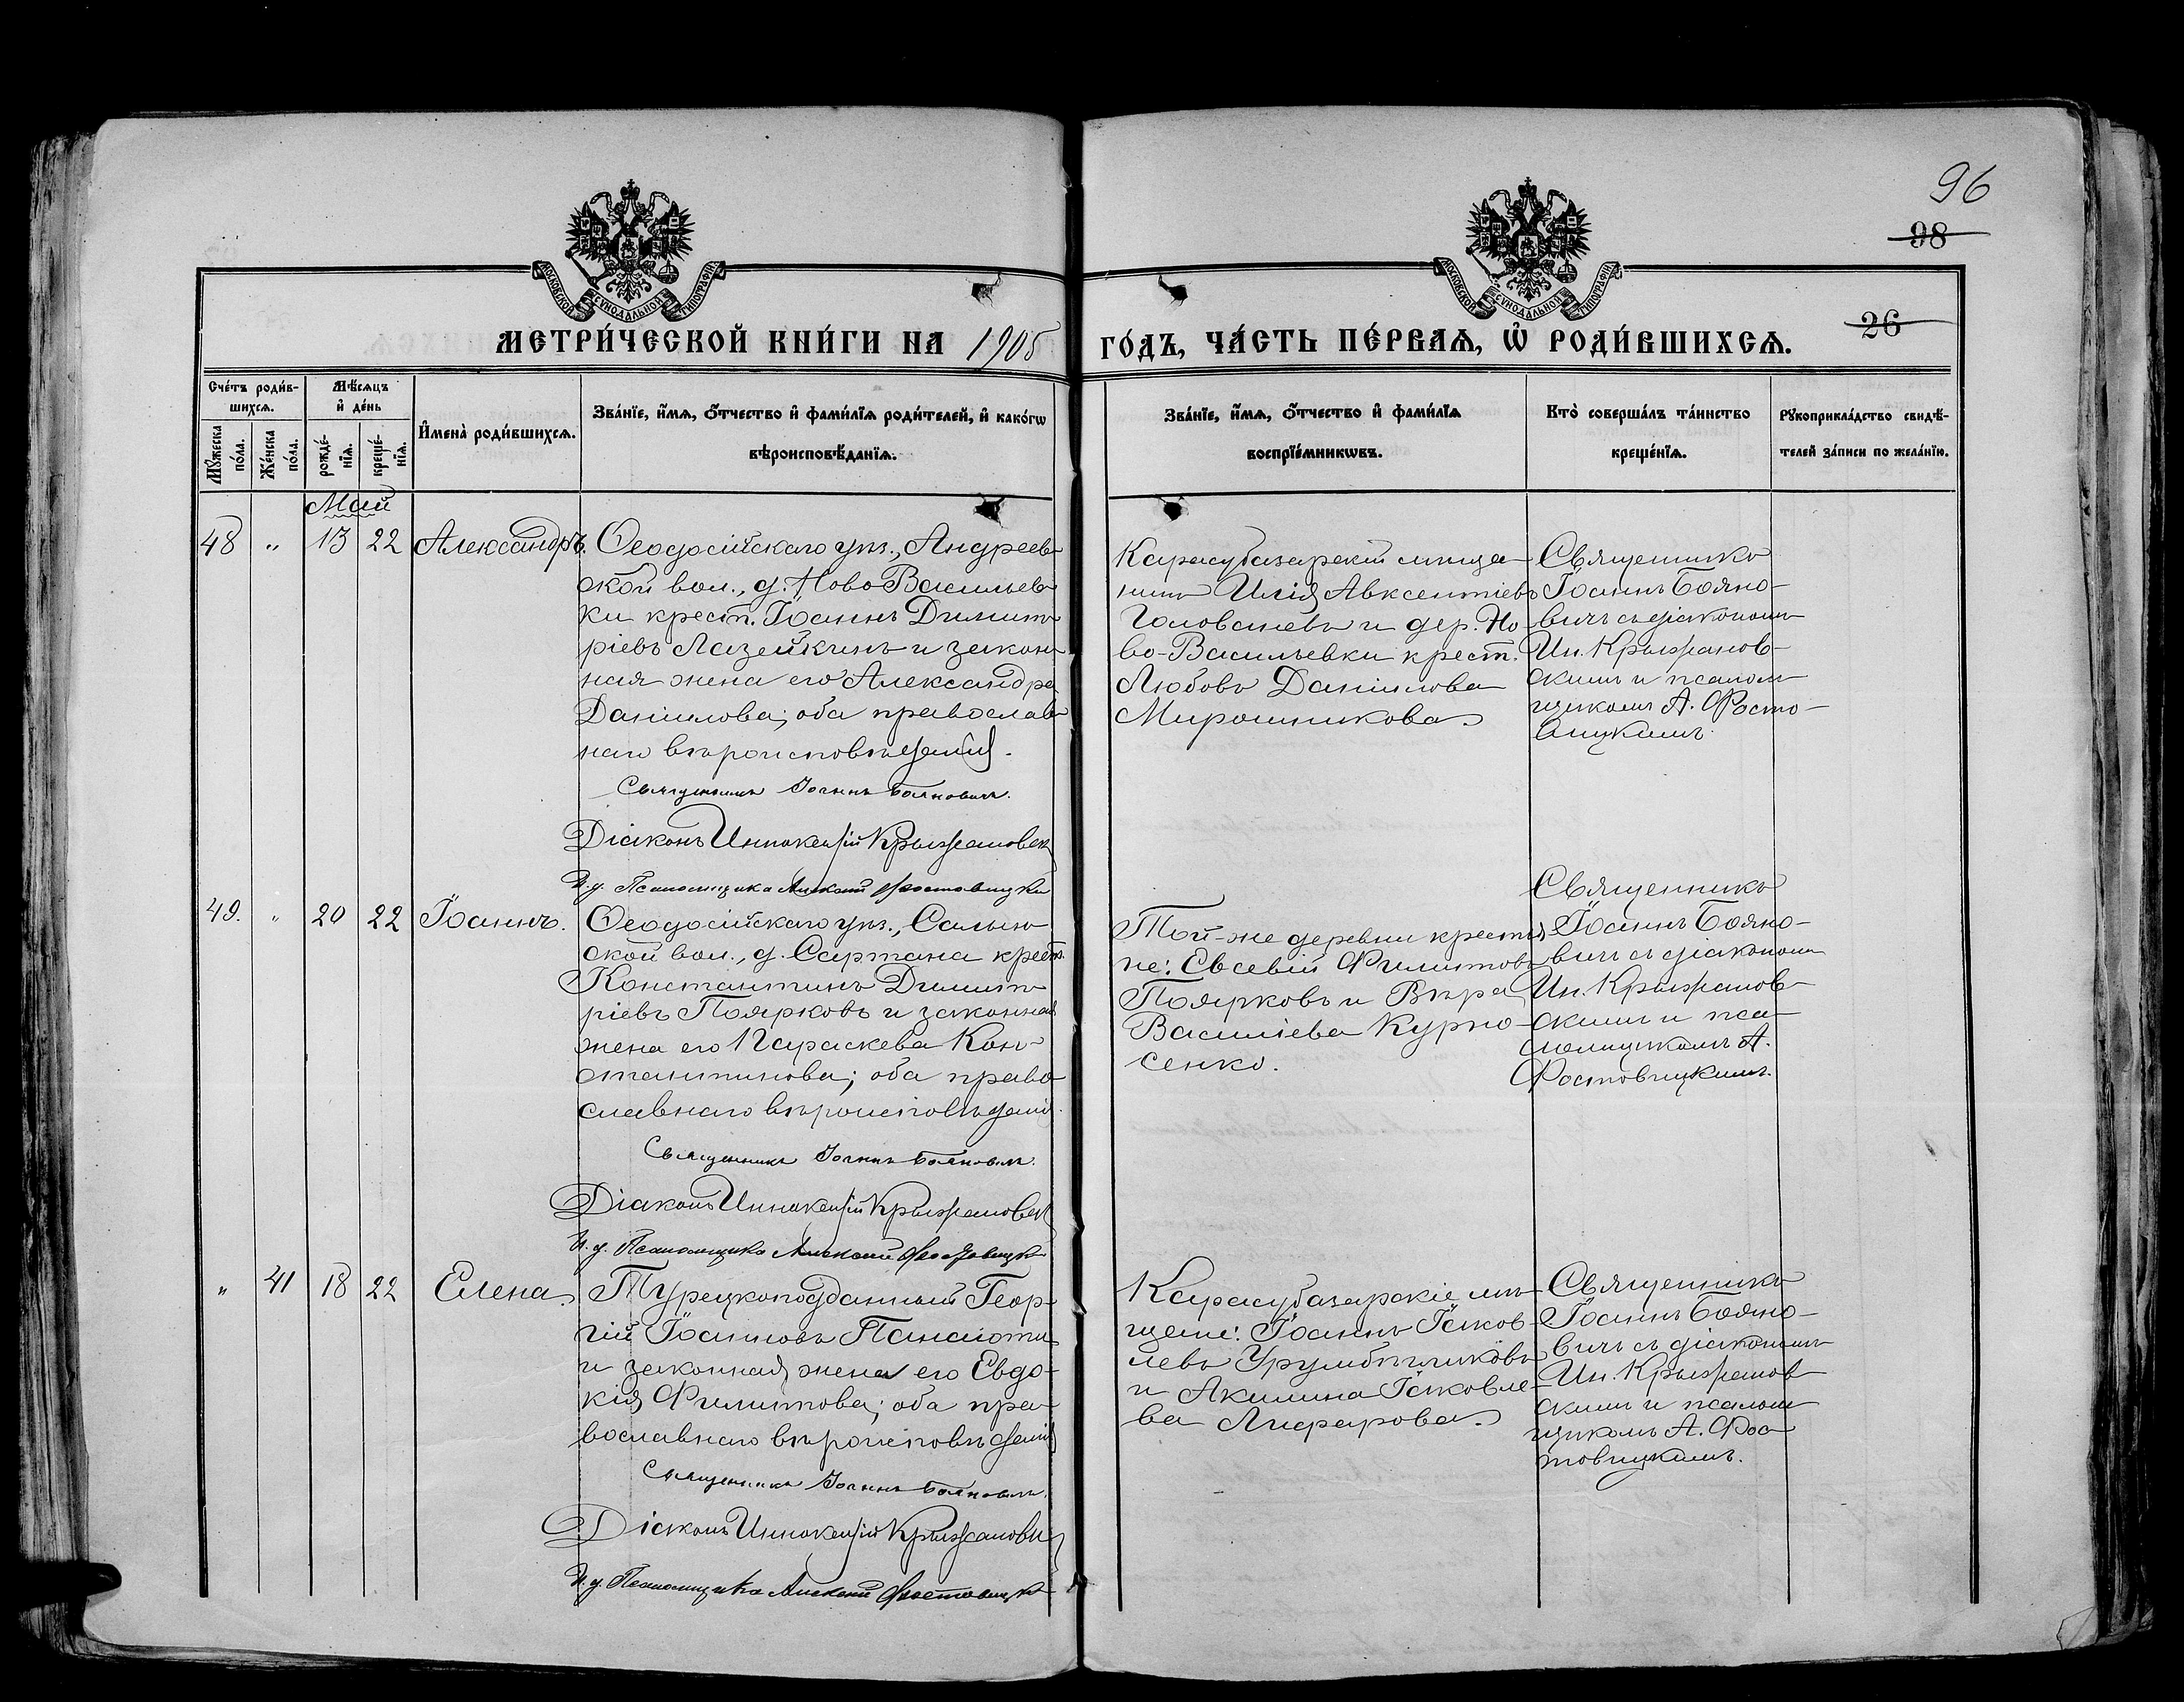 96
98
26
МОСКОВСКОЙ СУНОДАЛЬНОЙ ТИПОГРАФІИ
МОСКОВСКОЙ СУНОДАЛЬНОЙ ТИПОГРАФІИ
МЕТРИ́ЧЕСКОЙ КНИ́ГИ НА 1905
ГО́ДЪ, ЧА́СТЬ ПЕ́РВАѦ, Ѡ҆ РОДИ́ВШИХСѦ.
Сче́тъ роди́в-
шихсѧ.
Мѣ́сѧцъ
и҆ де́нь
Мꙋ́жеска
по́ла.
Же́нска
по́ла.
рожде́-
нїѧ.
креще́-
нїѧ.
И҆мена̀ роди́вшихсѧ.
Зва́нїе, и҆́мѧ, ѻ҆́тчество и҆ фами́лїѧ роди́телей, и҆ како́гѡ
вѣроисповѣ́данїѧ.
Зва́нїе, и҆́мѧ, ѻ҆́тчество и҆ фами́лїѧ
воспрїе́мникѡвъ.
Кто̀ соверша́лъ та́инство
креще́нїѧ.
Рꙋкоприкла́дство свидѣ́-
телей за́писи по жела́нїю.
Май
48 " 13 22 Александръ.
Ѳеодосійскаго уѣз., Андреев
ской вол., д. Ново Васильев
ки крест. Іоаннъ Димит
ріевъ Лазейкинъ и закон
ная жена его Александра
Даніилова; оба православ
наго вѣроисповѣданія.
Священникъ Іоаннъ Бояновичъ.
Діаконъ Иннокентій Крыжановск
И.д. Псаломщика Алексій Ростовицкій
Карасубазарскій мѣща-
нинъ Илія Авксентіевъ
Головачевъ и дер. Но-
во-Васильевки крест.
Любовь Даніилова
Мирошникова.
Священникъ
Іоаннъ Бояно-
вичъ съ діакономъ
Ин. Крыжанов-
скимъ и псалом
щикомъ А. Росто-
вицкимъ.
49. " 20 22 Іоаннъ.
Ѳеодосійскаго уѣз., Салын
ской вол., д. Сартана крест.
Константинъ Димит
ріевъ Поярковъ и законная
жена его Параскева Кон-
стантинова; оба право
славнаго вѣроисповѣданія.
Священникъ Іоаннъ Бояновичъ.
Діаконъ Иннокентій Крыжановск
И.д. Псаломщика Алексій Ростовицкій
Той-же деревни крестья
не: Евсевій Филиповъ
Поярковъ и Вѣра
Василіева Курно-
сенко.
Священникъ
Іоаннъ Бояно-
вичъ съ діакономъ
Ин. Крыжанов-
скимъ и пса-
ломщикомъ А.
Ростовицкимъ.
" 41 18 22 Елена.
Турецкоподданный Геор-
гій Іоанновъ Панаіоти
и законная жена его Евдо-
кія Филиппова; оба пра-
вославнаго вѣроисповѣданія
Священникъ Іоаннъ Бояновичъ.
Діаконъ Иннокентій Крыжановск
И.д. Псаломщика Алексій Ростовицкій
Карасубазарскіе мѣ-
щане: Іоаннъ Іаков-
левъ Урумбѣгликовъ
и Акилина Іаковле-
ва Лифарова.
Священникъ
Іоаннъ Бояно-
вичъ съ діакономъ
Ин. Крыжанов
скимъ и псалом
щикомъ А. Рос
товицкимъ.